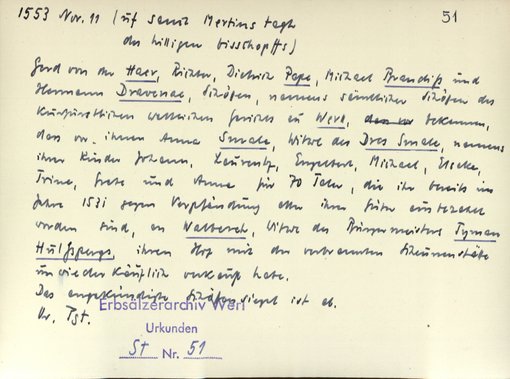 1553 Nov. 11 (uf sanct Mertins tagh
des hilligen bisschopffs)
51
Gerd von der Haer, Richter, Dietrich Pape, Michael Brandiß und
Hermann Dravenae, Schöfen, namens sämtlicher Schöfen des
Kurfürstlichen weltlichen Gerichts zu Werl, bekennen,
dass vor ihnen Anna Smale, Witwe des Dres Smale, namens
ihrer Kinder Johann, Laurentz, Engelbert, Michael, Elseke,
Trine, Grete und Anna für 70 Taler, die ihr bereits im
Jahre 1531 gegen Verpfändung aller ihrer Güter ausbezahlt
worden sind, an Walberch, Witwe des Bürgermeisters Tyman
Hulssbergs ihren Hof mit der verbrannten Scheunenstätte
unwiederkäuflich verkauft habe.
Das angekündigte Schöfensiegel ist ab.
Or. Pgt.
Erbsälzerarchiv Werl
Urkunden
St Nr. 51